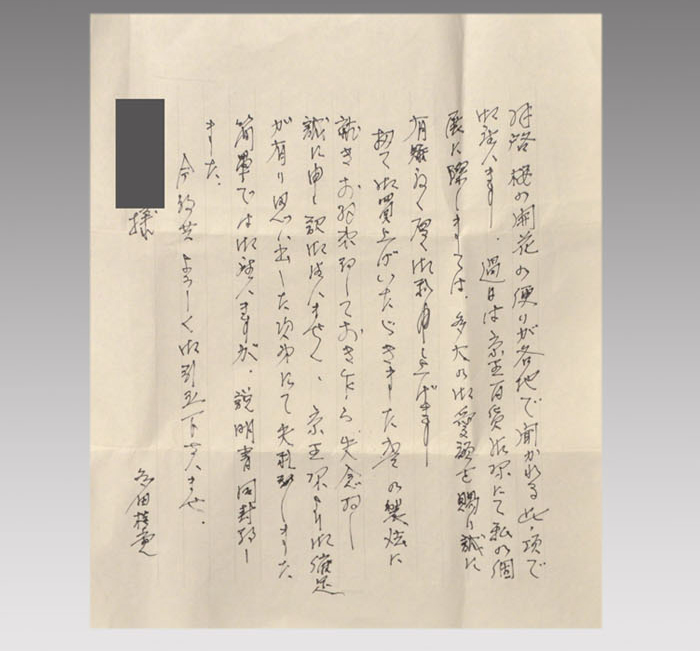 拝啓 桜の開花の便りが各地で聞かれる此の項で
御座います。過日は京王百貨店様にて私の個
展に際しましては、多大の御愛顧を賜り誠に
有難く厚く御礼申し上げます
扨て御買上げいただきました壷の製法に
就きお約束致しておき乍ら失念致し
誠に申し訳御座いません、京王様より御催促
が有り思い出した次第にて失礼致しました
簡単では御座いますが、説明書同封致し
ました。
今後共よろしく御引立下さいませ。
多田桂寛
様